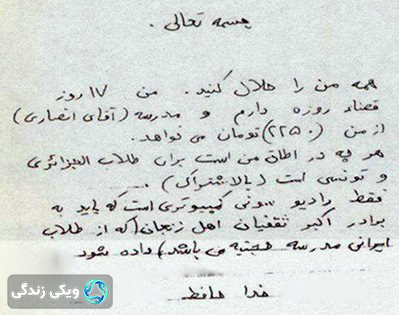 بسمه تعالی .
همه من را حلال کنید . من ۱۷ روز
قضاء روزه دارم و مدرسه (آقای انصاری)
از من (۲۲۵۰) تومان می خواهد .
هر چه در اطاق من است برای طلاب الجزائری
و تونسی است (بالاشتراک) .
فقط رادیو سونی کمپیوتری است که باید به
برادر اکبر ثقفیان اهل زنجان (که از طلاب
ایرانی مدرسه حجتیه می باشد) داده شود
خدا حافظ
ویکی زندگی